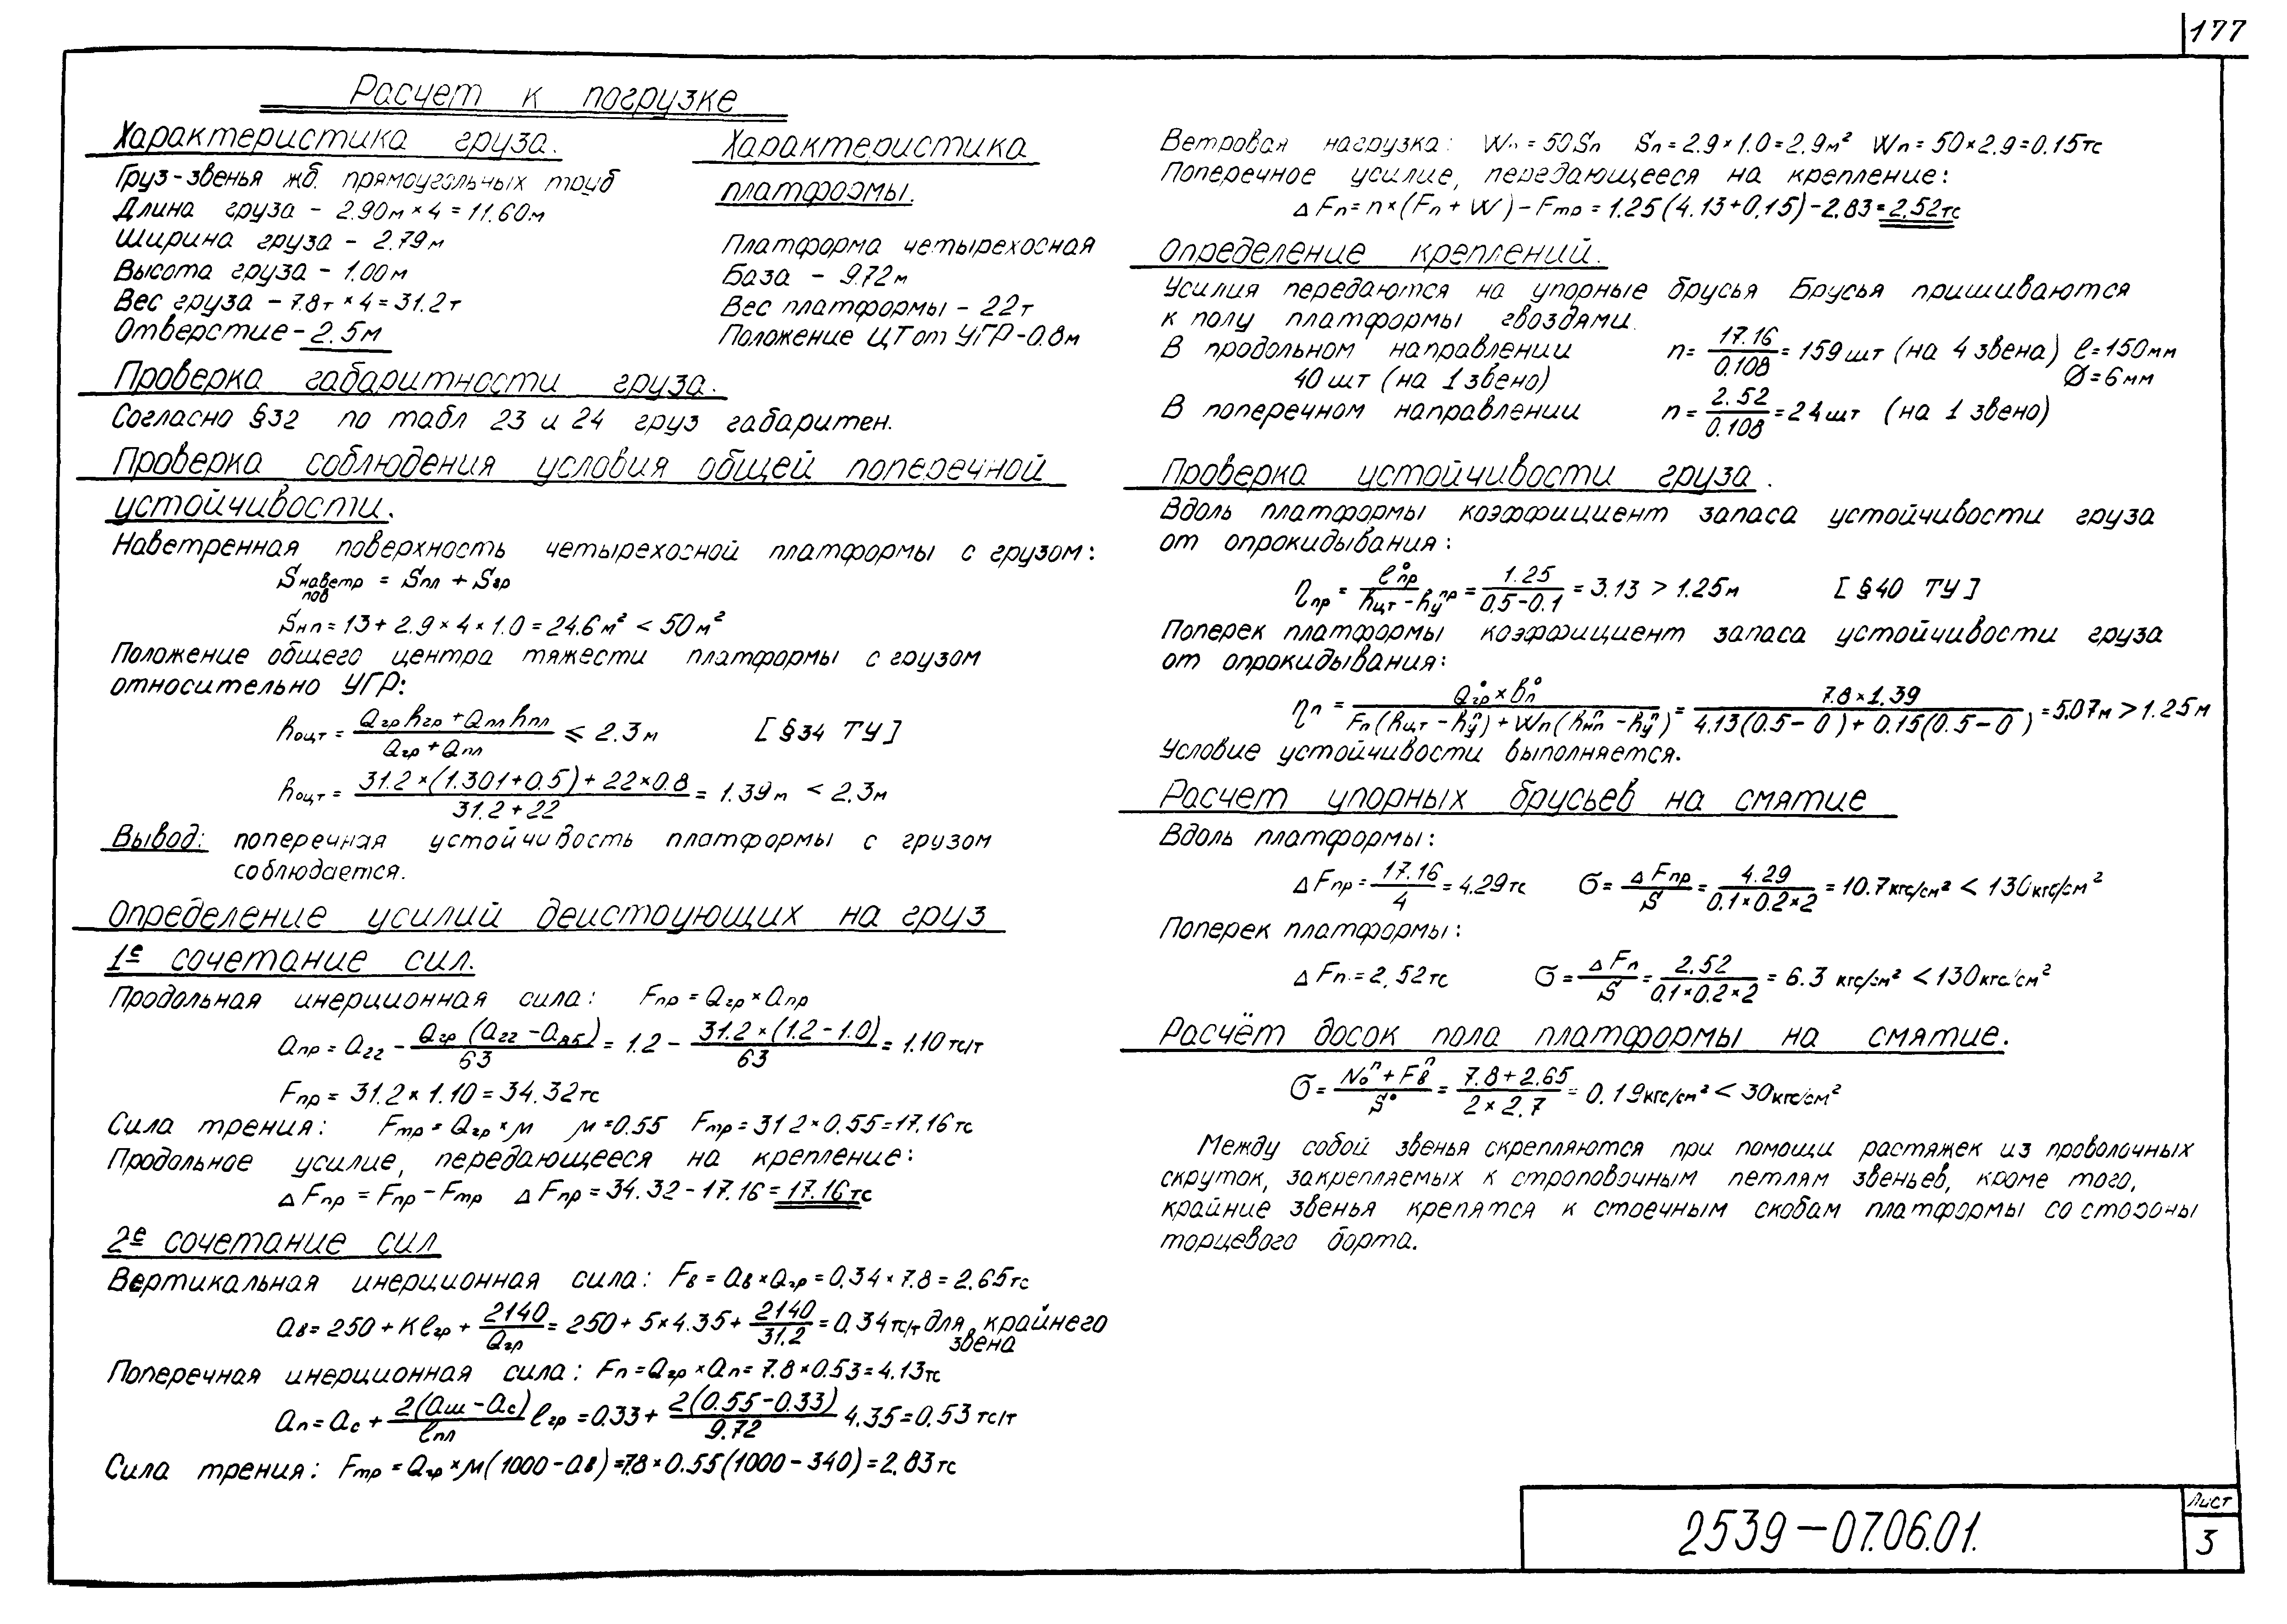 177
Расчет к погрузке
Характеристика груза.
Груз-звенья жб. прямоугольных труб
Длина груза - 2.90м × 4 = 11.60м
Ширина груза - 2.79м
Высота груза - 1.00м
Вес груза - 7.8т × 4 = 31.2т
Отверстие - 2.5м
Характеристика
платформы.
Платформа четырехосная
База - 9.72м
Вес платформы - 22т
Положение ЦТ от УГР - 0.8м
Проверка габаритности груза.
Согласно §32 по табл 23 и 24 груз габаритен.
Проверка соблюдения условия общей поперечной
устойчивости.
Наветренная поверхность четырехосной платформы с грузом:
Sнаветр пов = Sпл + Sгр
Sнп = 13 + 2.9 × 4 × 1.0 = 24.6м² < 50м²
Положение общего центра тяжести платформы с грузом
относительно УГР:
hоцт = (Qгр hгр + Qпл hпл) / (Qгр + Qпл) ⩽ 2.3м [§34 ТУ]
hоцт = (31.2 × (1.301 + 0.5) + 22 × 0.8) / (31.2 + 22) = 1.39м < 2.3м
Вывод: поперечная устойчивость платформы с грузом
соблюдается.
Определение усилий деистоующих на груз
1е сочетание сил.
Продольная инерционная сила: Fпр = Qгр × aпр
aпр = a22 - Qгр (a22 - a85) / 63 = 1.2 - 31.2 × (1.2 - 1.0) / 63 = 1.10 тс/т
Fпр = 31.2 × 1.10 = 34.32тс
Сила трения: Fтр = Qгр × м м = 0.55 Fтр = 31 2 × 0.55 = 17.16 тс
Продольное усилие, передающееся на крепление:
Δ Fпр = Fпр - Fтр Δ Fпр = 34.32 - 17.16 = 17.16 тс
2е сочетание сил
Вертикальная инерционная сила: Fв = aв × Qгр = 0.34 × 7.8 = 2.65тс
aв = 250 + Kℓгр + 2140 / Qгр = 250 + 5 × 4.35 + 2140 / 31.2 = 0.34 тс/т для крайнего
звена
Поперечная инерционная сила: Fп = Qгр × aп = 7.8 × 0.53 = 4.13тс
aп = aс + 2(aш - aс) / ℓпл ℓгр = 0.33 + 2(0.55 - 0.33) / 9.72 4.35 = 0.53 тс/т
Сила трения: Fтр = Qгр × м (1000 - aв) = 7.8 × 0.55 (1000 - 340) = 2.83 тс
Ветровая нагрузка: Wп = 50Sп Sп = 2.9 × 1.0 = 2.9м² Wп = 50 × 2.9 = 0.15тс
Поперечное усилие, передающееся на крепление:
Δ Fп = n × (Fп + W) - Fтр = 1.25 (4.13 + 0.15) - 2.83 = 2.52тс
Определение креплений.
Усилия передаются на упорные брусья Брусья пришиваются
к полу платформы гвоздями.
В продольном направлении n = 17.16 / 0.108 = 159 шт (на 4 звена) ℓ = 150мм
40 шт (на 1 звено) Ø = 6мм
В поперечном направлении n = 2.52 / 0.108 = 24 шт (на 1 звено)
Проверка устойчивости груза.
Вдоль платформы коэффициент запаса устойчивости груза
от опрокидывания:
ηпр = ℓ°пр / (hцт - hу пр) = 1.25 / (0.5 - 0.1) = 3.13 > 1.25м [§40 ТУ]
Поперек платформы коэффициент запаса устойчивости груза
от опрокидывания:
ηп = Q°гр × b°п / (Fп (hцт - hпу) + Wп (hпнп - hпу)) = 7.8 × 1.39 / (4.13 (0.5 - 0) + 0.15 (0.5 - 0)) = 5.07м > 1.25м
Условие устойчивости выполняется.
Расчет упорных брусьев на смятие
Вдоль платформы:
Δ Fпр = 17.16 / 4 = 4.29тс σ = Δ Fпр / S = 4.29 / (0.1 × 0.2 × 2) = 10.7 кгс/см² < 130кгс/см²
Поперек платформы:
Δ Fп = 2.52тс σ = Δ Fп / S = 2.52 / (0.1 × 0.2 × 2) = 6.3 кгс/см² < 130кгс/см²
Расчёт досок пола платформы на смятие.
σ = (Nоп + Fвп) / S° = (7.8 + 2.65) / (2 × 2.7) = 0.19кгс/см² < 30кгс/см²
Между собой звенья скрепляются при помощи растяжек из проволочных
скруток, закрепляемых к строповочным петлям звеньев, кроме того,
крайние звенья крепятся к стоечным скобам платформы со стороны
торцевого борта.
2539-07.06.01.
Лист
3